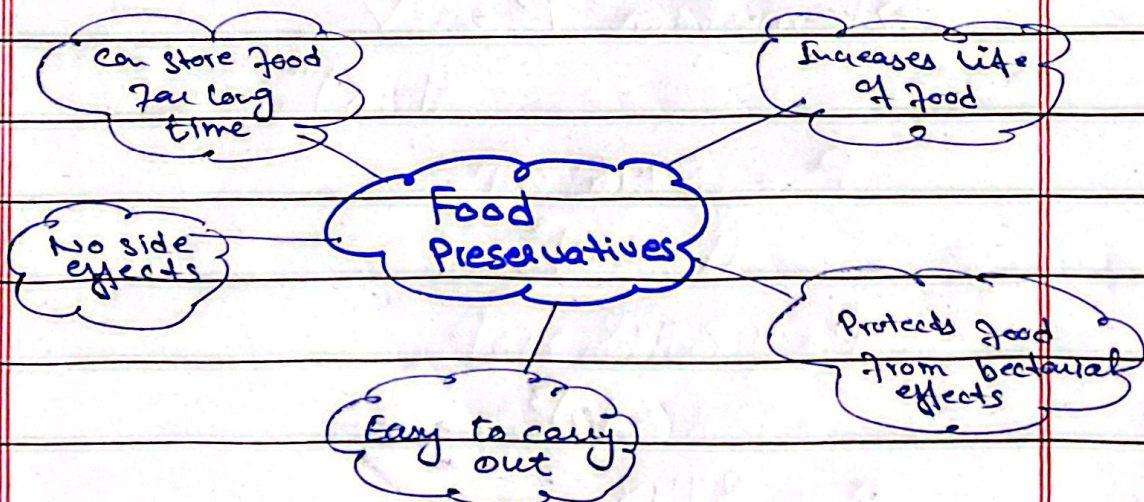 Can store food
for long
time
Increases life
of food
Food
Preservatives
No side
effects
Protects food
from bectarial
effects
Easy to carry
out